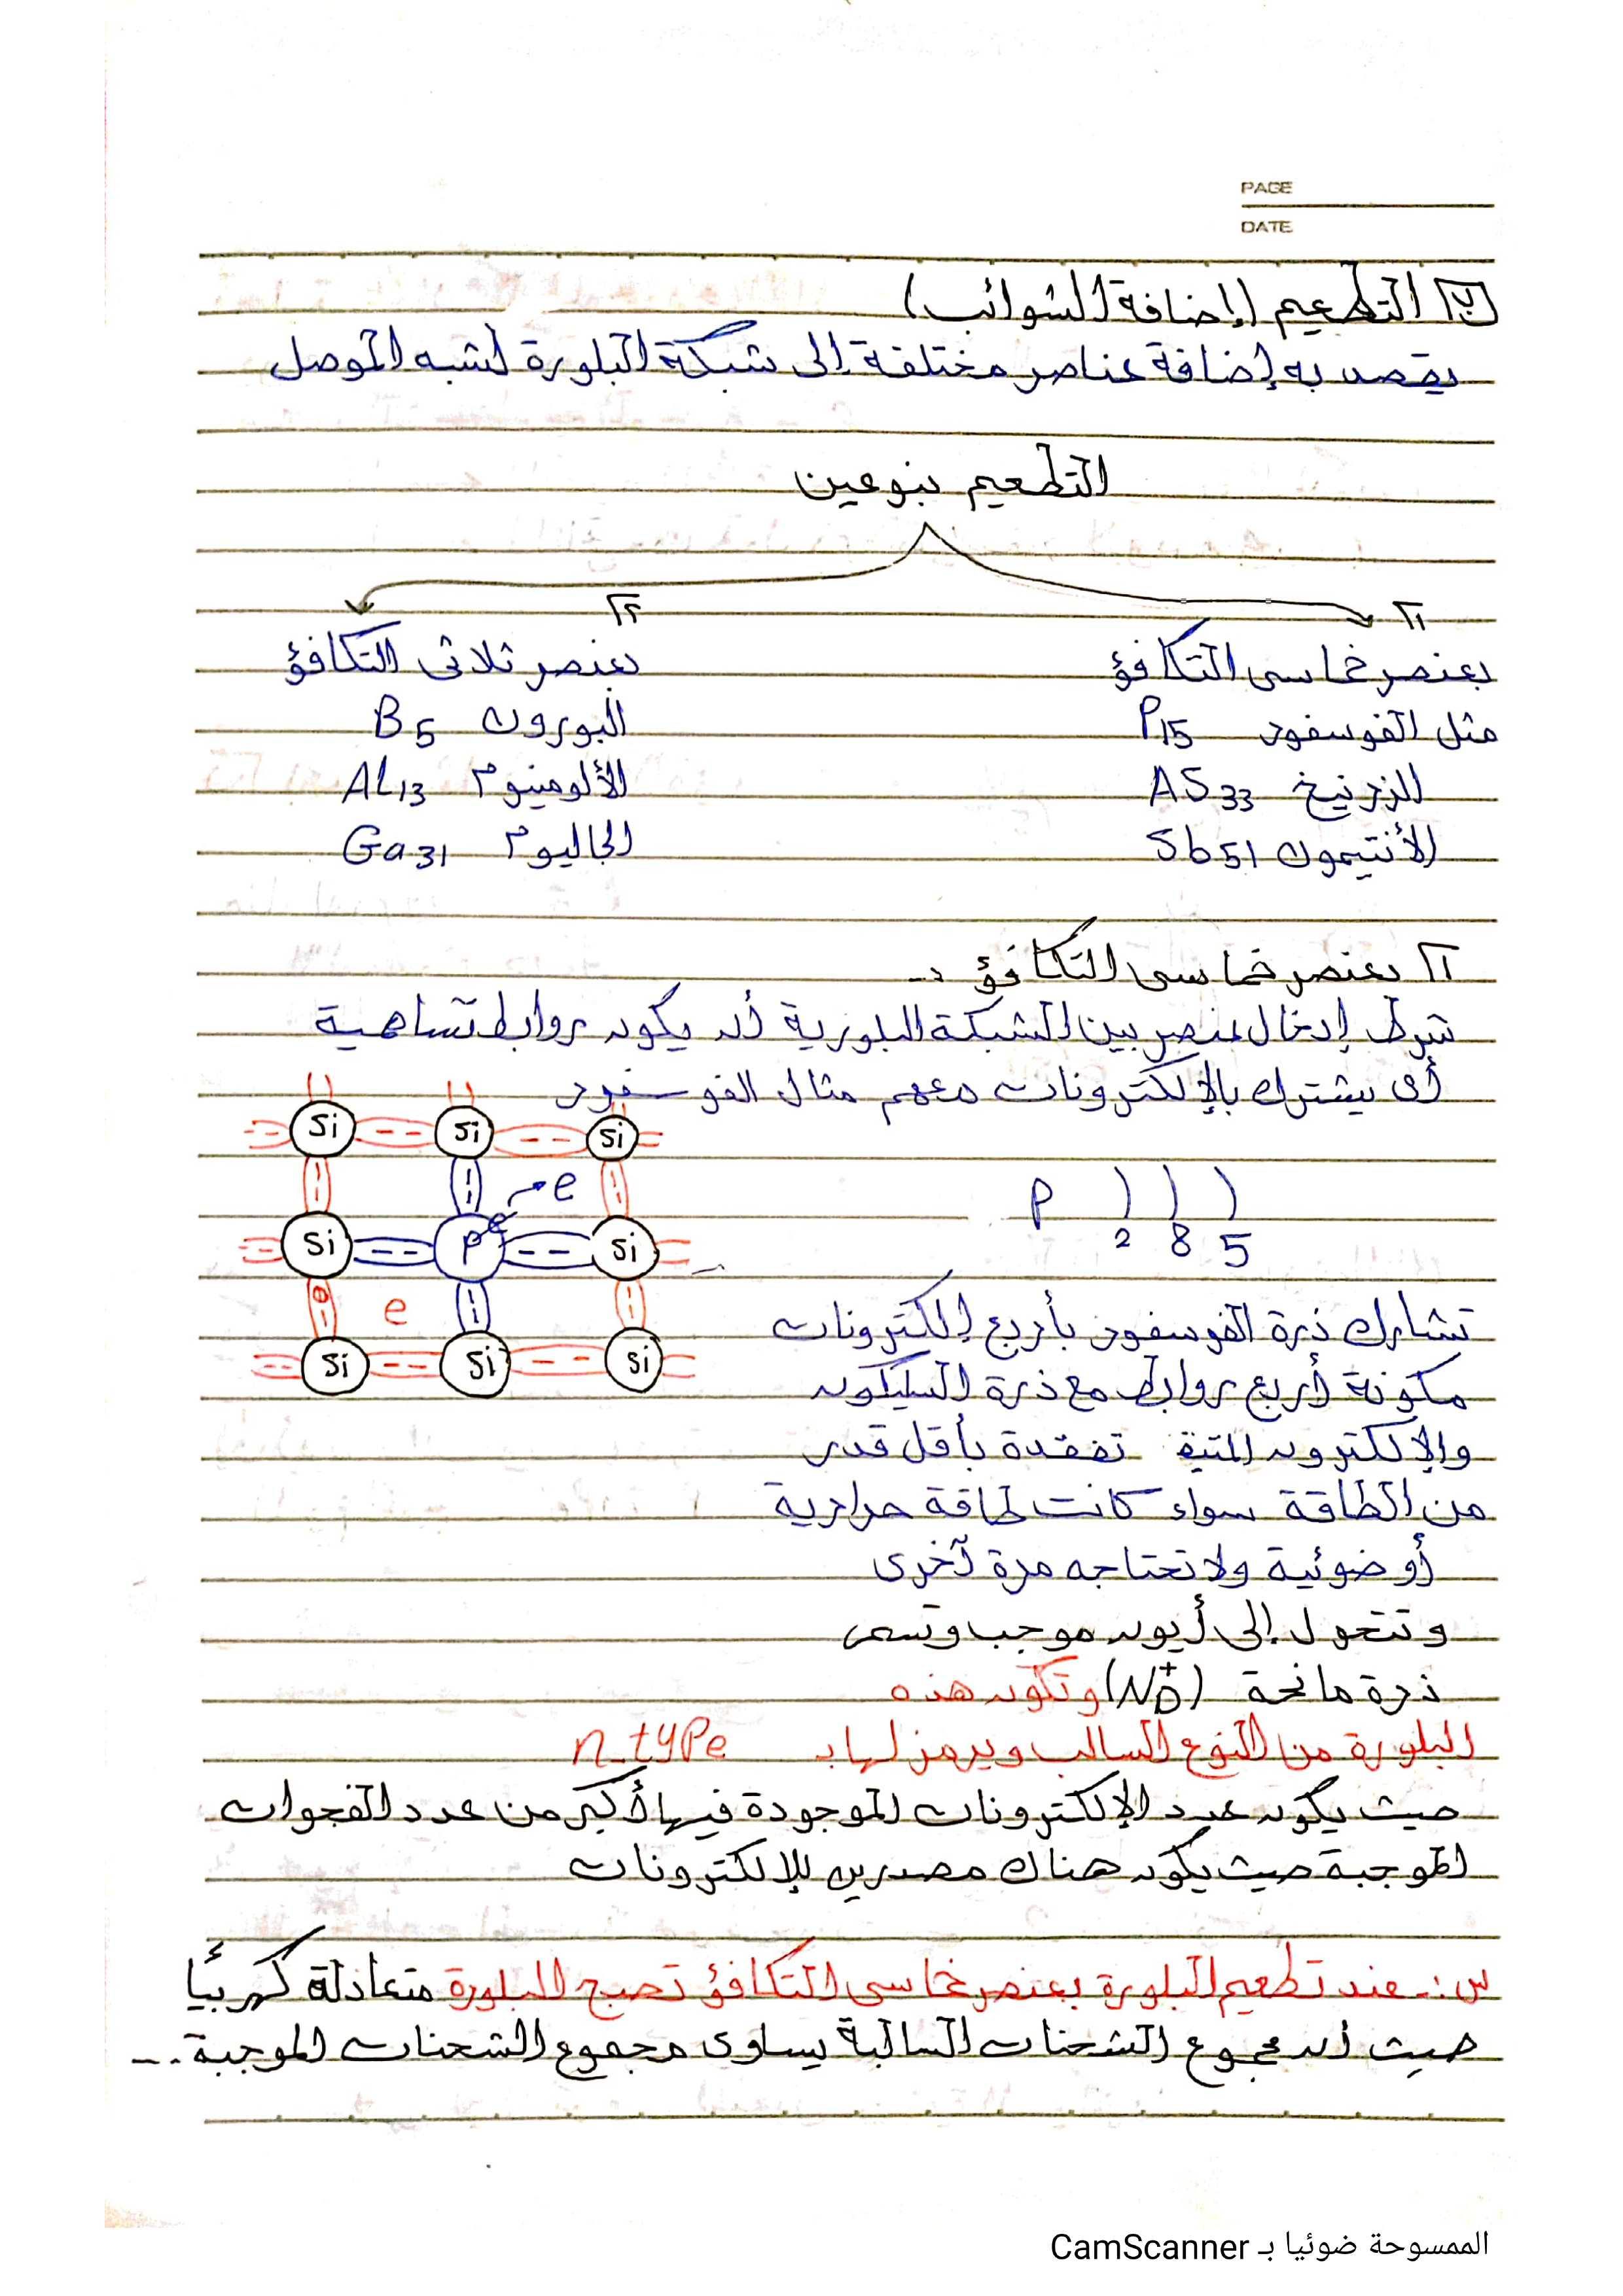 PAGE
DATE
٢ التطعيم (إضافة الشوائب)
يقصد به إضافة عناصر مختلفة إلى شبكة البلورة لشبه الموصل
التطعيم بنوعين
١ ٢
بعنصر خماسى التكافؤ بعنصر ثلاثى التكافؤ
مثل الفوسفور P15 البورون B5
الزرنيخ AS33 الألومينيوم AL13
الأنتيمون Sb51 الجاليوم Ga31
١ بعنصر خماسى التكافؤ :-
شرط إدخال عنصر بين الشبكة البلورية أن يكون روابط تساهمية
أى يشترك بالإلكترونات معهم مثال الفوسفور
Si Si Si
e
P 2 8 5
Si P e Si
e
Si Si Si
تشارك ذرة الفوسفور بأربع إلكترونات
مكونة أربع روابط مع ذرة السليكون
والإلكترون المتبقى تفقدة بأقل قدر
من الطاقة سواء كانت طاقة حرارية
أو ضوئية ولا تحتاجه مرة آخرى
وتتحول إلى أيون موجب وتسمى
ذرة مانحة (ND+) وتكون هذه
البلورة من النوع السالب ويرمز لها بـ n-type
حيث يكون عدد الإلكترونات الموجودة فيها أكبر من عدد الفجوات
الموجبة حيث يكون هناك مصدرين للإلكترونات
س:- عند تطعيم البلورة بعنصر خماسى التكافؤ تصبح البلورة متعادلة كهربيًا
حيث أن مجموع الشحنات السالبة يساوى مجموع الشحنات الموجبة..
الممسوحة ضوئيا بـ CamScanner